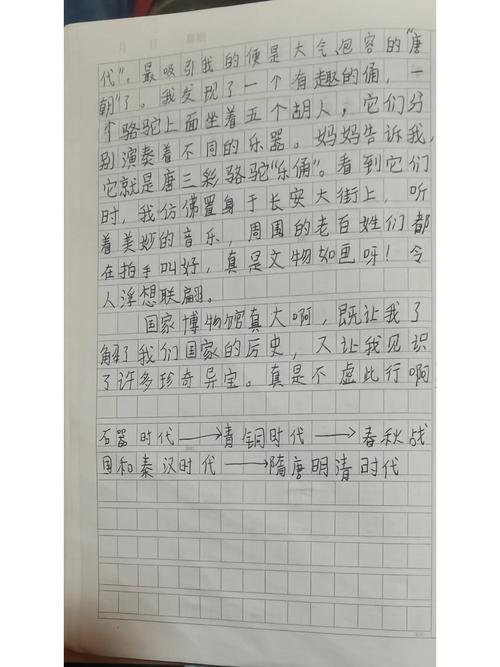 代"。最吸引我的便是大气包容的"唐
朝"了。我发现了一个有趣的俑，一
个骆驼上面坐着五个胡人，它们分
别演奏着不同的乐器。妈妈告诉我，
它就是唐三彩骆驼"乐俑"。看到它们
时，我仿佛置身于长安大街上，听
着美妙的音乐，周围的老百姓们都
在拍手叫好，真是文物如画呀！令
人浮想联翩。
国家博物馆真大啊，既让我了
解了我们国家的历史，又让我见识
了许多珍奇异宝。真是不虚此行啊
石器时代→青铜时代→春秋战
国和秦汉时代→隋唐明清时代